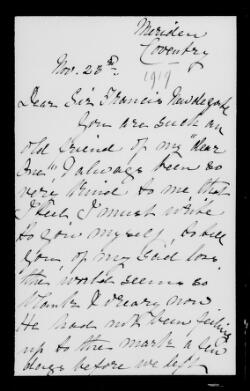 Meriden
Coventry
Nov. 28th. 1919
Dear Sir Francis Newdegate
You are such an
old friend of my "dear
& always been so
very kind to me that
I feel I must write
to you myself, to tell
you of my sad loss
the world seems so
blank & dreary now
He had not been feeling
up to the mark a few
days before we left